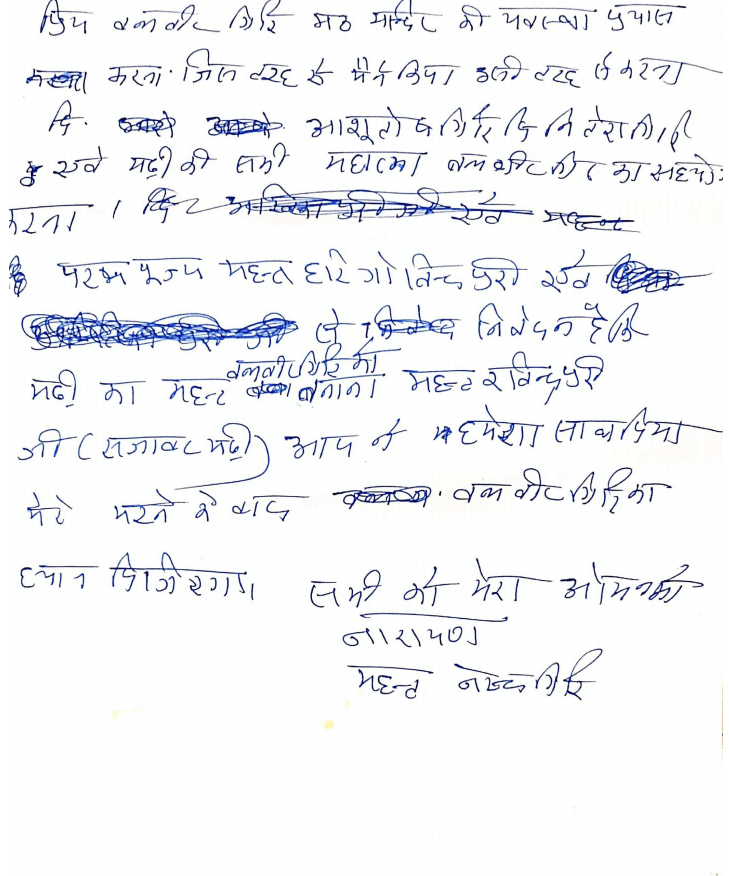 प्रिय बलवीर गिरि मठ मन्दिर की व्यवस्था प्रयास
करना जिस तरह से मैने किया इसी तरह से करना
आशूतोष गिरि नितेश गिरि
एवं मढ़ी की सभी महात्मा बलवीर गिरि का सहयोग
करना ।
परम पूज्य महन्त हरि गोविन्द पुरी एवं
से निवेदन है कि
मढ़ी का महन्त बलवीर गिरि को बनाना महन्त रविन्द्र पुरी
जी (सजावट मढ़ी) आप ने हमेशा साथ दिया
मेरे मरने के बाद बलवीर गिरि का
ध्यान दिजीएगा। सभी को मेरा ओम नमो
नारायण
महन्त नरेन्द्र गिरि